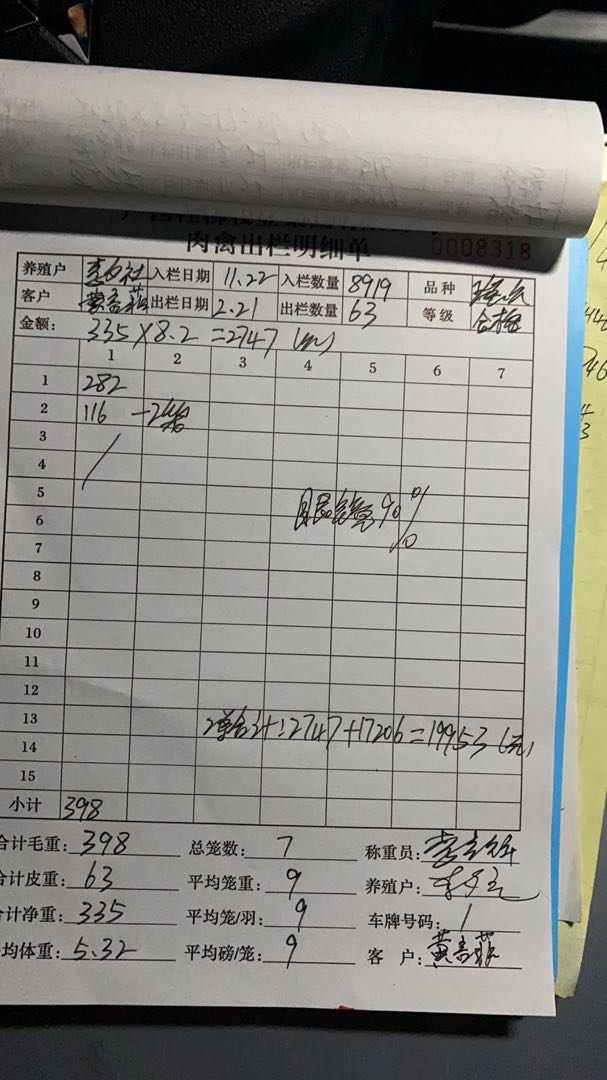 肉禽出栏明细单 0008318
养殖户 入栏日期 11.22 入栏数量 8919 品种
客户 黄高菲 出栏日期 2.21 出栏数量 63 等级 合格
金额: 335×8.2=2747(元)
1 2 3 4 5 6 7
1 282
2 116 -2笼
3
4
5
6 90%
7
8
9
10
11
12
13 合计:2747+17206=19953(元)
14
15
小计 398
合计毛重: 398 总笼数: 7 称重员:
合计皮重: 63 平均笼重: 9 养殖户:
合计净重: 335 平均笼/羽: 9 车牌号码: 1
均体重: 5.32 平均磅/笼: 9 客 户: 黄高菲